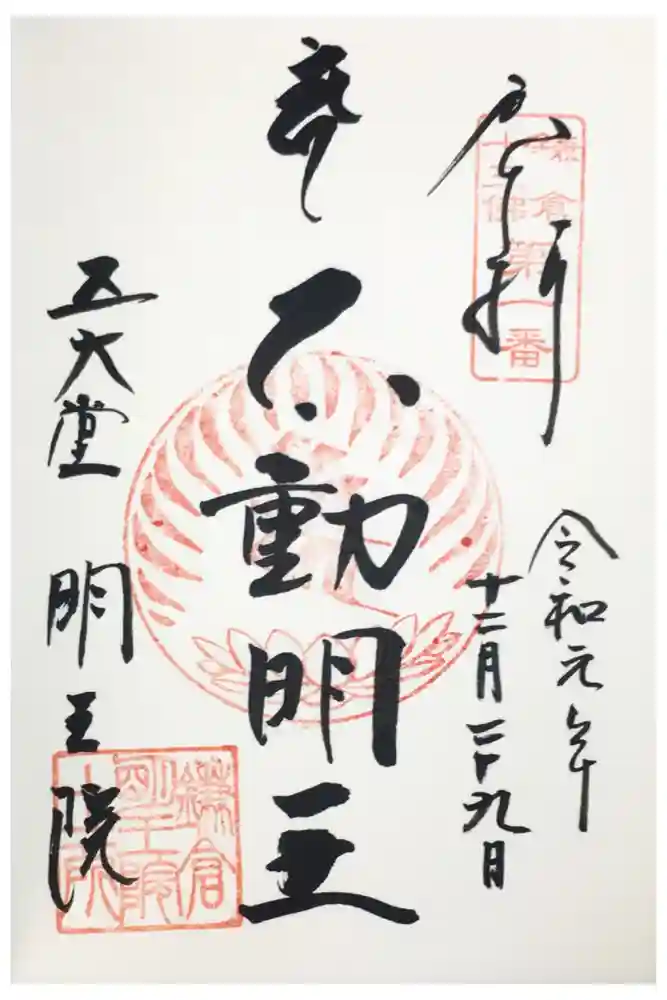 奉拝
鎌倉
十三佛
第一番
令和元年
十二月二十九日
不動明王
五大堂 明王院
鎌倉